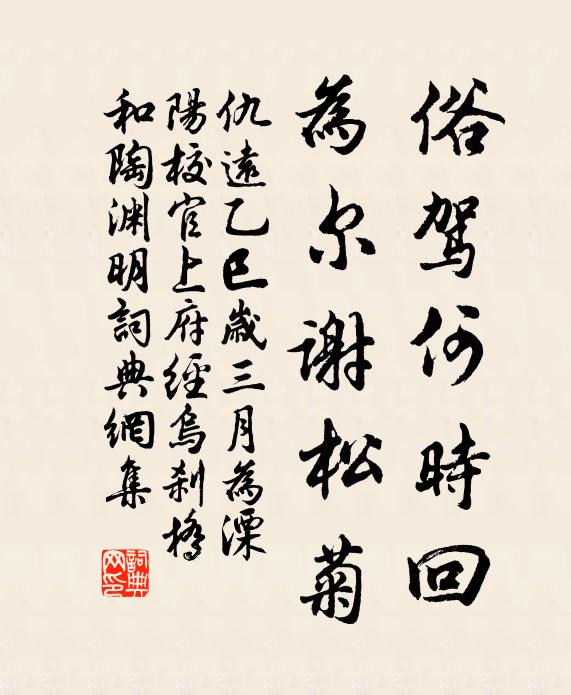 俗駕何時回
為尔謝松菊
仇遠乙巳歲三月為溧
陽校官上府經烏刹橋
和陶渊明詞典網集
詞典网印